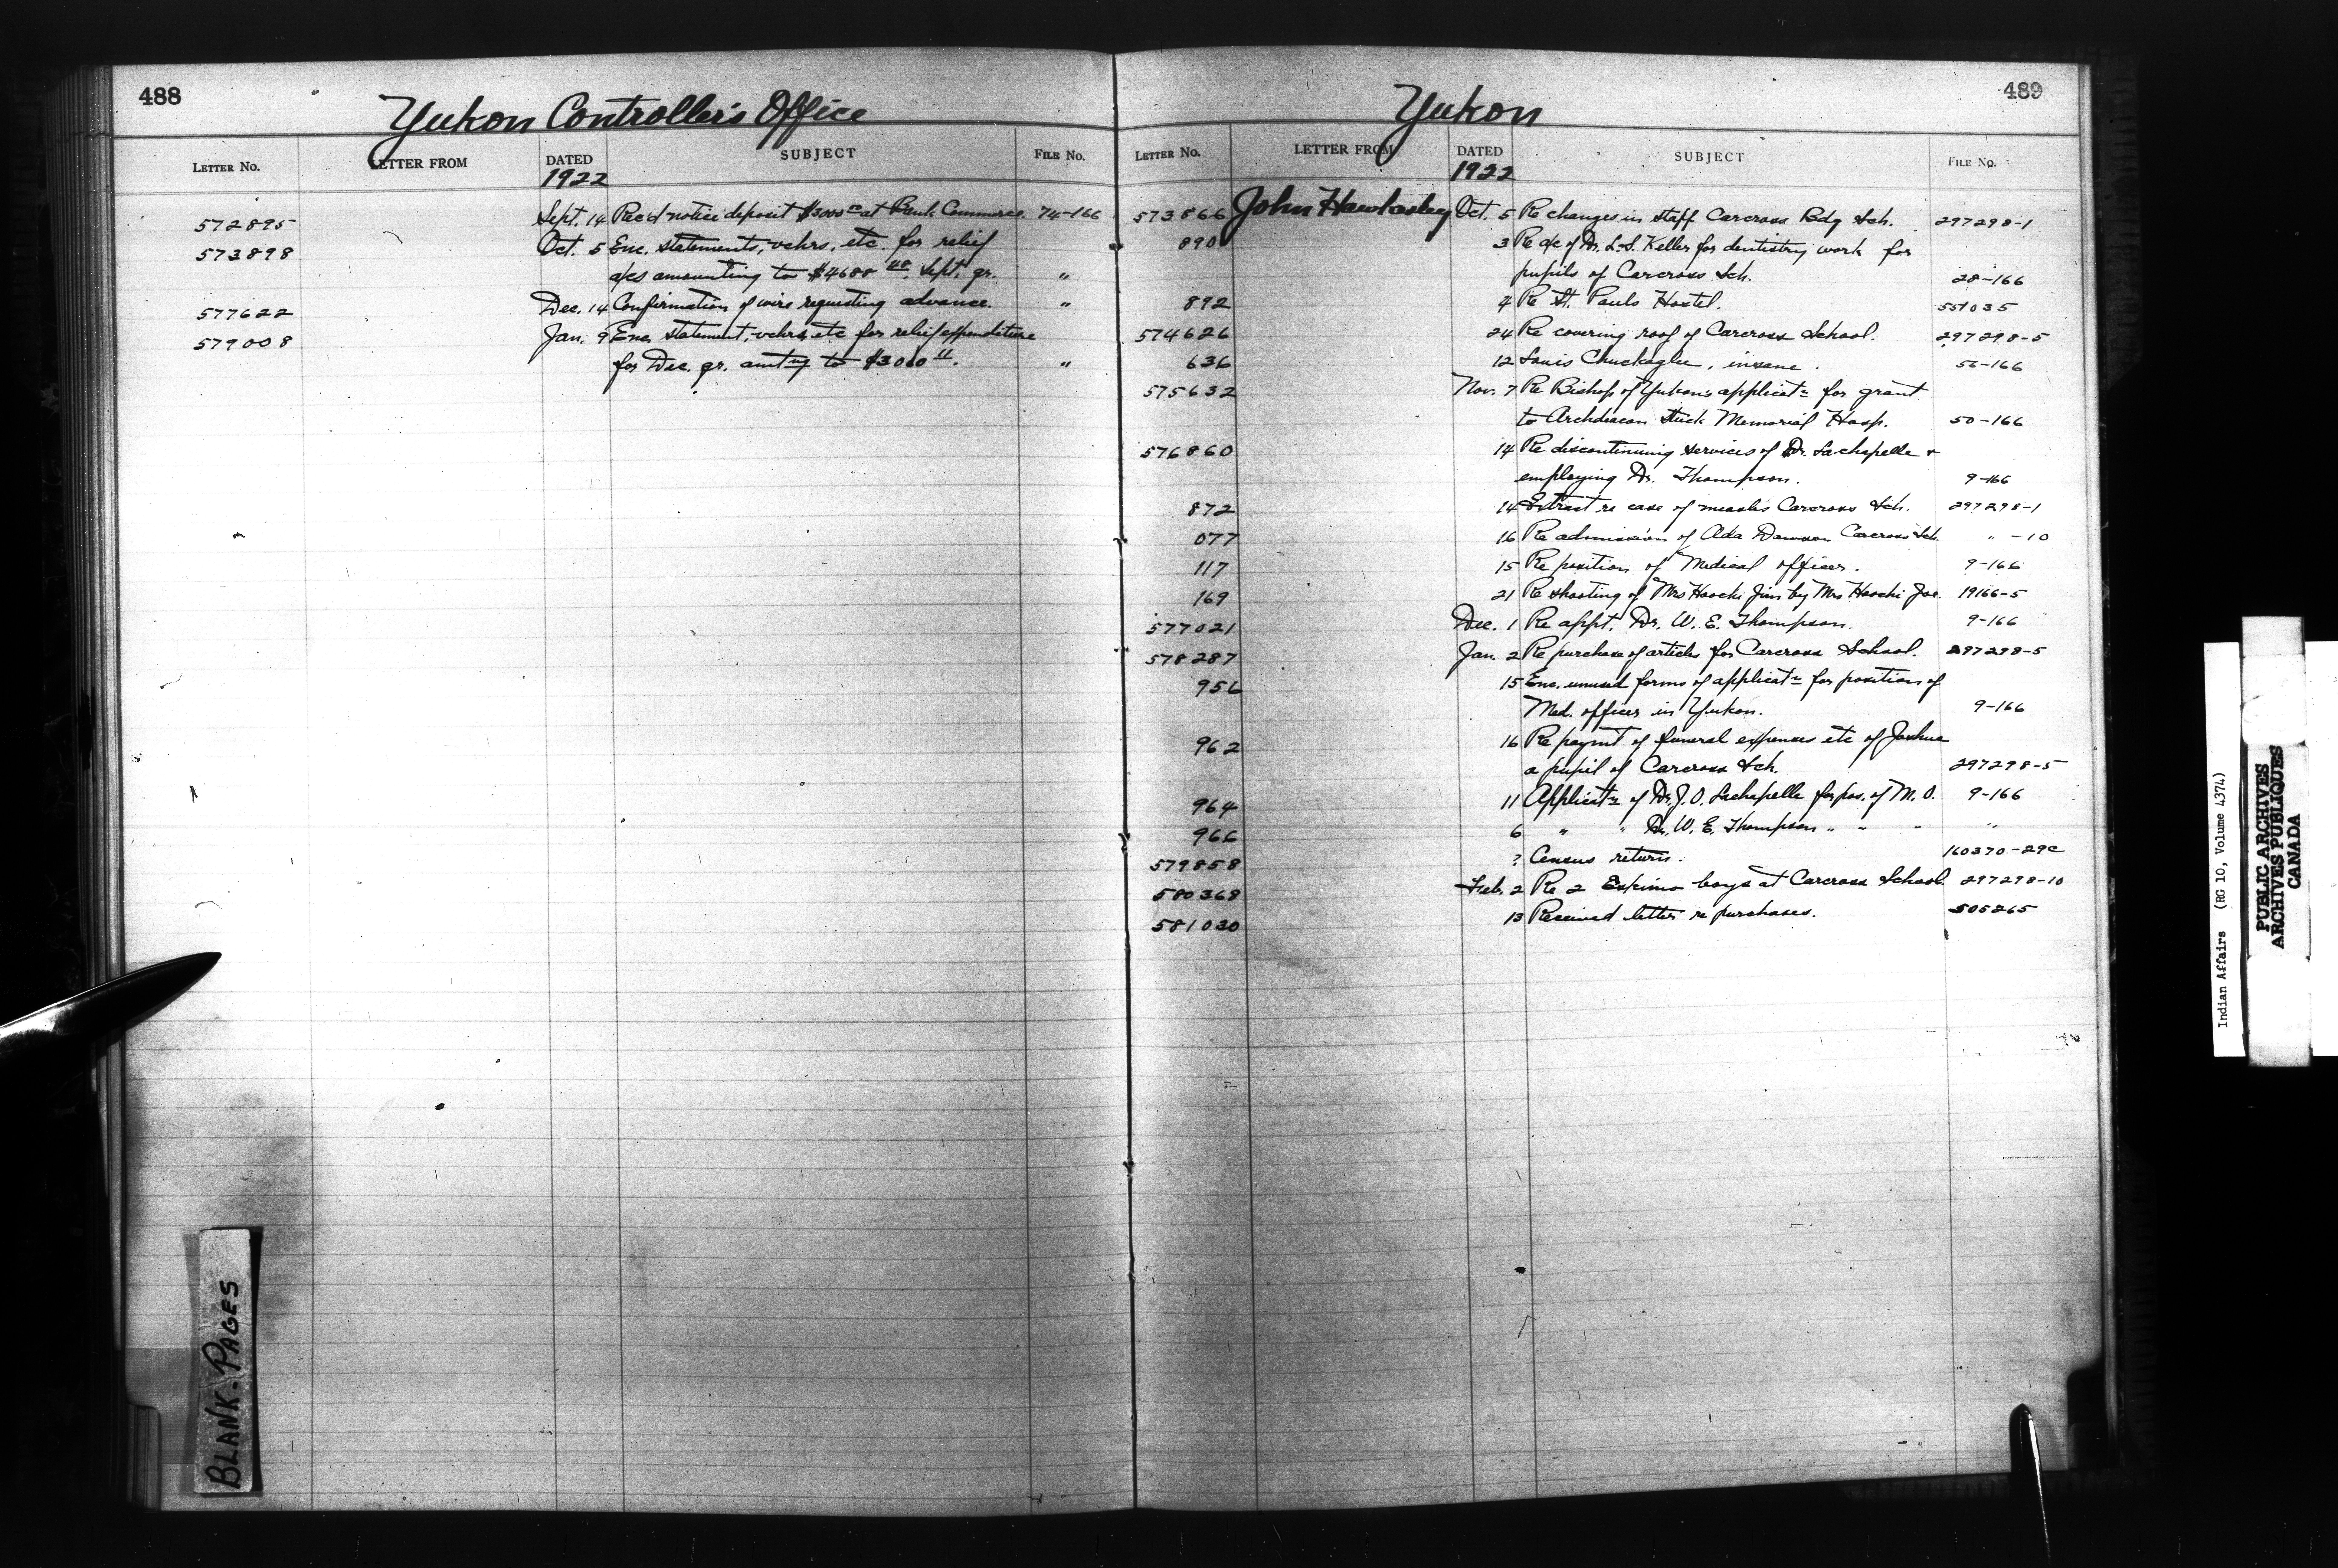 488
Yukon Controller's Office
LETTER No. LETTER FROM DATED SUBJECT FILE No.
1922
572895 Sept. 14 Rec'd notice deposit $3000 00 at Bank Commerce. 74-166
573898 Oct. 5 Enc. statements, vchrs, etc. for relief
a/cs amounting to $4688 48. Sept. qr. "
577622 Dec. 14 Confirmation of wire requesting advance. "
579008 Jan. 9 Enc. statement, vchrs, etc for relief expenditure
for Dec. qr. amtng to $3010 11. "
BLANK-PAGES
489
Yukon
LETTER No. LETTER FROM DATED SUBJECT FILE No.
1922
573866 John Hawksley Oct. 5 Re changes in staff Carcross Bdg Sch. 297298-1
890 3 Re a/c of Dr. L.S. Keller for dentistry work for
pupils of Carcross Sch. 28-166
892 4 Re St. Pauls Hostel. 551035
574626 24 Re covering roof of Carcross School. 297298-5
636 12 Louis Chuckaglee, insane. 56-166
575632 Nov. 7 Re Bishop of Yukon's applicatn for grant
to Archdeacon Stuck Memorial Hosp. 50-166
576860 14 Re discontinuing services of Dr. Lachapelle +
employing Dr. Thompson. 9-166
872 14 Extract re case of measles Carcross Sch. 297298-1
077 16 Re admission of Ada Dawson Carcross Sch. " -10
117 15 Re position of Medical officer. 9-166
169 21 Re shooting of Mrs Hoochi Jim by Mrs Hoochi Joe. 19166-5
577021 Dec. 1 Re appt. Dr. W. E. Thompson. 9-166
578287 Jan. 2 Re purchase of articles for Carcross School. 297298-5
956 15 Enc. unused forms of applicatn for position of
Med. officer in Yukon. 9-166
962 16 Re paymt of funeral expenses etc of Joshua
a pupil of Carcross Sch. 297298-5
964 11 Applicatn of Dr. J. O. Lachapelle for pos. of M. O. 9-166
966 6 " " Dr. W. E. Thompson " " " "
579858 ? Census return. 160370-29c
580368 Feb. 2 Re 2 Eskimo boys at Carcross School. 297298-10
581030 13 Received letter re purchases. 505265
Indian Affairs (RG 10, Volume 4374)
PUBLIC ARCHIVES
ARCHIVES PUBLIQUES
CANADA